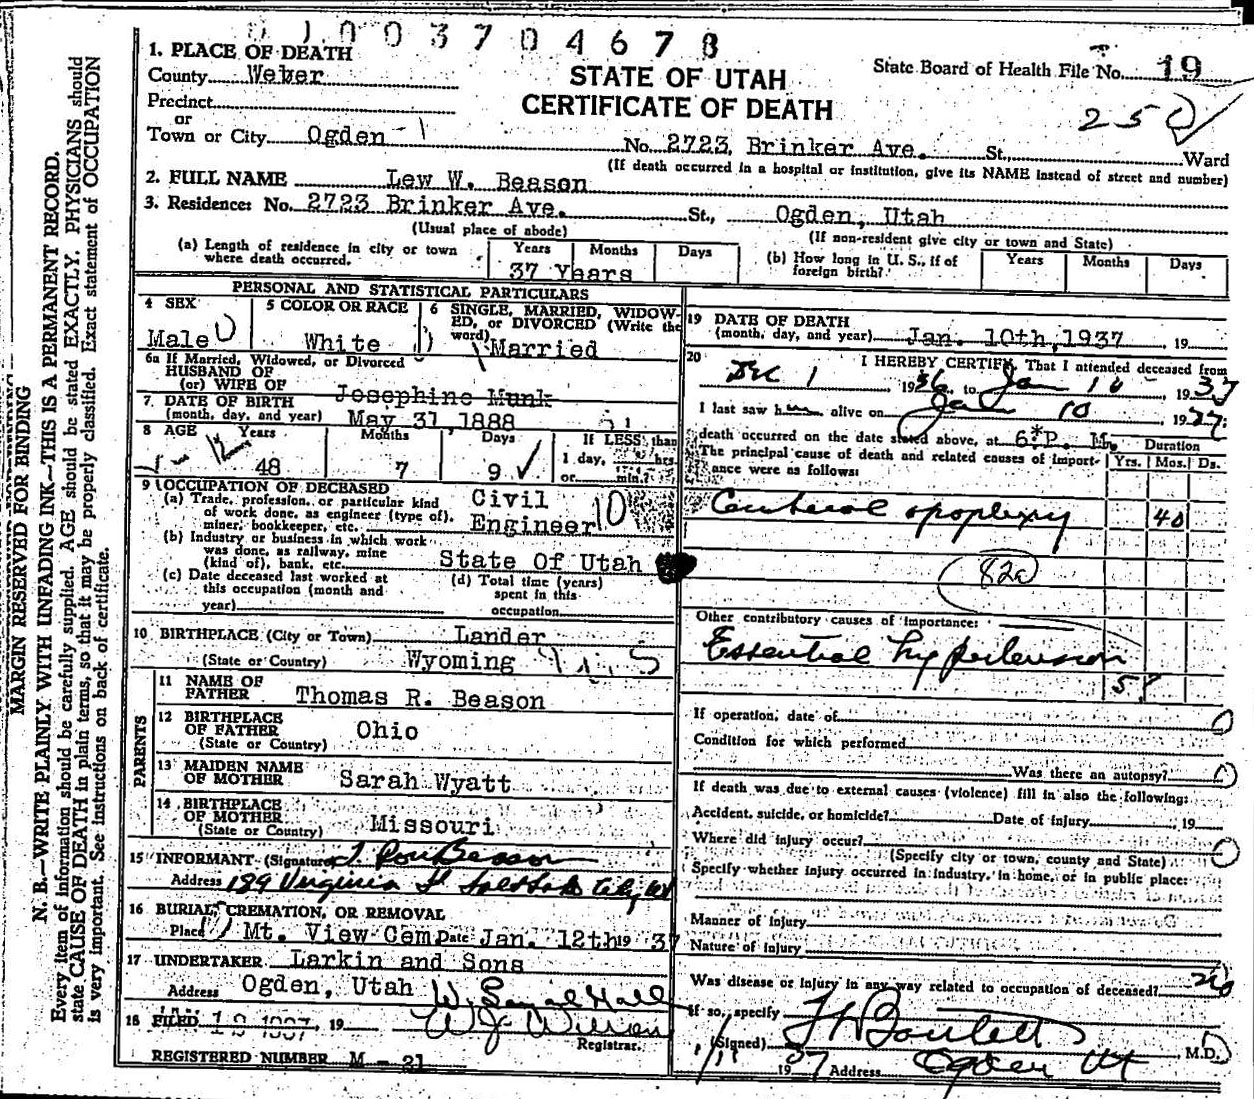 0 1 0 0 3 7 0 4 6 7 8
MARGIN RESERVED FOR BINDING
N. B.—WRITE PLAINLY WITH UNFADING INK—THIS IS A PERMANENT RECORD.
Every item of information should be carefully supplied. AGE should be stated EXACTLY. PHYSICIANS should
state CAUSE OF DEATH in plain terms, so that it may be properly classified. Exact statement of OCCUPATION
is very important. See instructions on back of certificate.
STATE OF UTAH
CERTIFICATE OF DEATH
State Board of Health File No. 19
250
1. PLACE OF DEATH
County Weber
Precinct
or
Town or City Ogden No. 2723 Brinker Ave. St., Ward
(If death occurred in a hospital or institution, give its NAME instead of street and number)
2. FULL NAME Lew W. Beason
3. Residence: No. 2723 Brinker Ave. St., Ogden, Utah
(Usual place of abode) (If non-resident give city or town and State)
(a) Length of residence in city or town where death occurred. Years Months Days
37 Years
(b) How long in U. S., if of foreign birth? Years Months Days
PERSONAL AND STATISTICAL PARTICULARS
4 SEX
Male
5 COLOR OR RACE
White
6 SINGLE, MARRIED, WIDOWED, or DIVORCED (Write the word)
Married
6a If Married, Widowed, or Divorced
HUSBAND OF
(or) WIFE OF Josephine Munk
7 DATE OF BIRTH
(month, day, and year) May 31, 1888
8 AGE Years Months Days If LESS than
48 7 9 1 day, hrs.
or min.?
9 OCCUPATION OF DECEASED
(a) Trade, profession, or particular kind of work done, as engineer (type of), miner, bookkeeper, etc. Civil Engineer 10
(b) Industry or business in which work was done, as railway, mine (kind of), bank, etc. State Of Utah
(c) Date deceased last worked at this occupation (month and year)
(d) Total time (years) spent in this occupation
10 BIRTHPLACE (City or Town) Lander
(State or Country) Wyoming
PARENTS
11 NAME OF FATHER Thomas R. Beason
12 BIRTHPLACE OF FATHER Ohio
(State or Country)
13 MAIDEN NAME OF MOTHER Sarah Wyatt
14 BIRTHPLACE OF MOTHER
(State or Country) Missouri
15 INFORMANT (Signature) Beason
Address 189 Virginia St Salt Lake City, Ut
16 BURIAL, CREMATION, OR REMOVAL
Place Mt. View Cem Date Jan. 12th 19 37
17 UNDERTAKER Larkin and Sons
Address Ogden, Utah
18 FILED 19
Registrar.
REGISTERED NUMBER M - 21
19 DATE OF DEATH
(month, day, and year) Jan. 10th, 1937, 19
20 I HEREBY CERTIFY, That I attended deceased from
Dec 1, 1936, to Jan 10, 1937
I last saw him alive on Jan 10 1937;
death occurred on the date stated above, at 6:P. M.
Duration
The principal cause of death and related causes of importance were as follows: Yrs. Mos. Ds.
Cerebral apoplexy 40
82a
Other contributory causes of importance:
Essential hypertension
5
If operation, date of
Condition for which performed
Was there an autopsy?
If death was due to external causes (violence) fill in also the following:
Accident, suicide, or homicide? Date of injury, 19
Where did injury occur?
(Specify city or town, county and State)
Specify whether injury occurred in industry, in home, or in public place:
Manner of injury
Nature of injury
Was disease or injury in any way related to occupation of deceased? no
If so, specify
(Signed) M.D.
1/11 1937 Address Ogden Ut